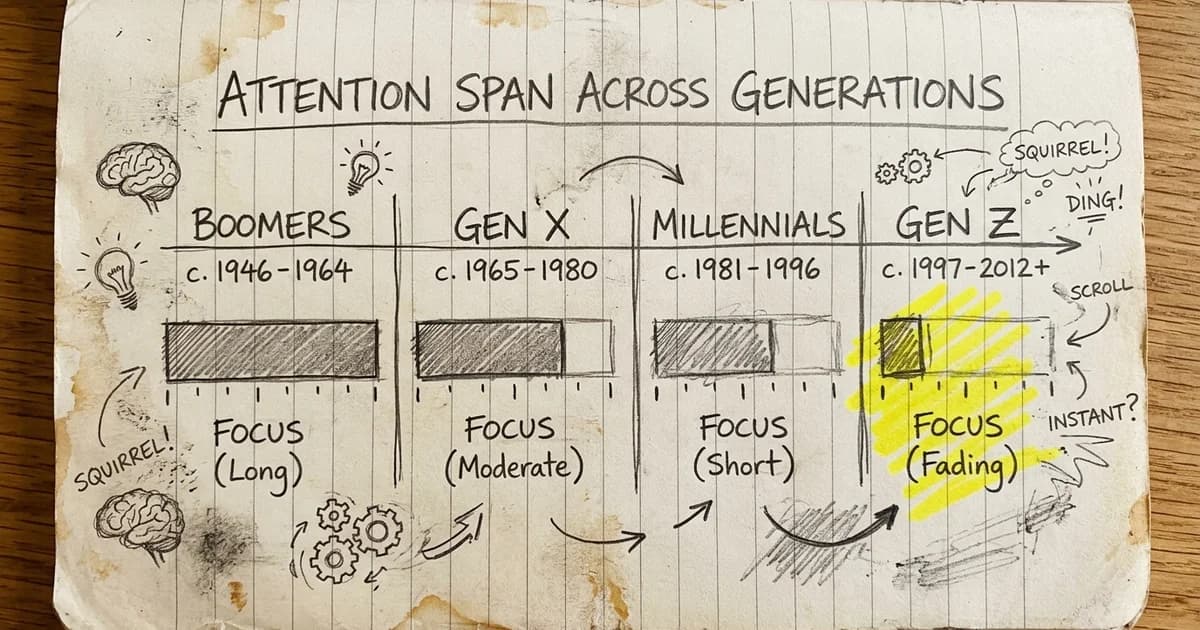 ATTENTION SPAN ACROSS GENERATIONS
SQUIRREL!
DING!
BOOMERS
GEN X
MILLENNIALS
GEN Z
c. 1946-1964
c. 1965-1980
c. 1981-1996
c. 1997-2012+
SCROLL
FOCUS
(Long)
FOCUS
(Moderate)
FOCUS
(Short)
FOCUS
(Fading)
INSTANT?
SQUIRREL!